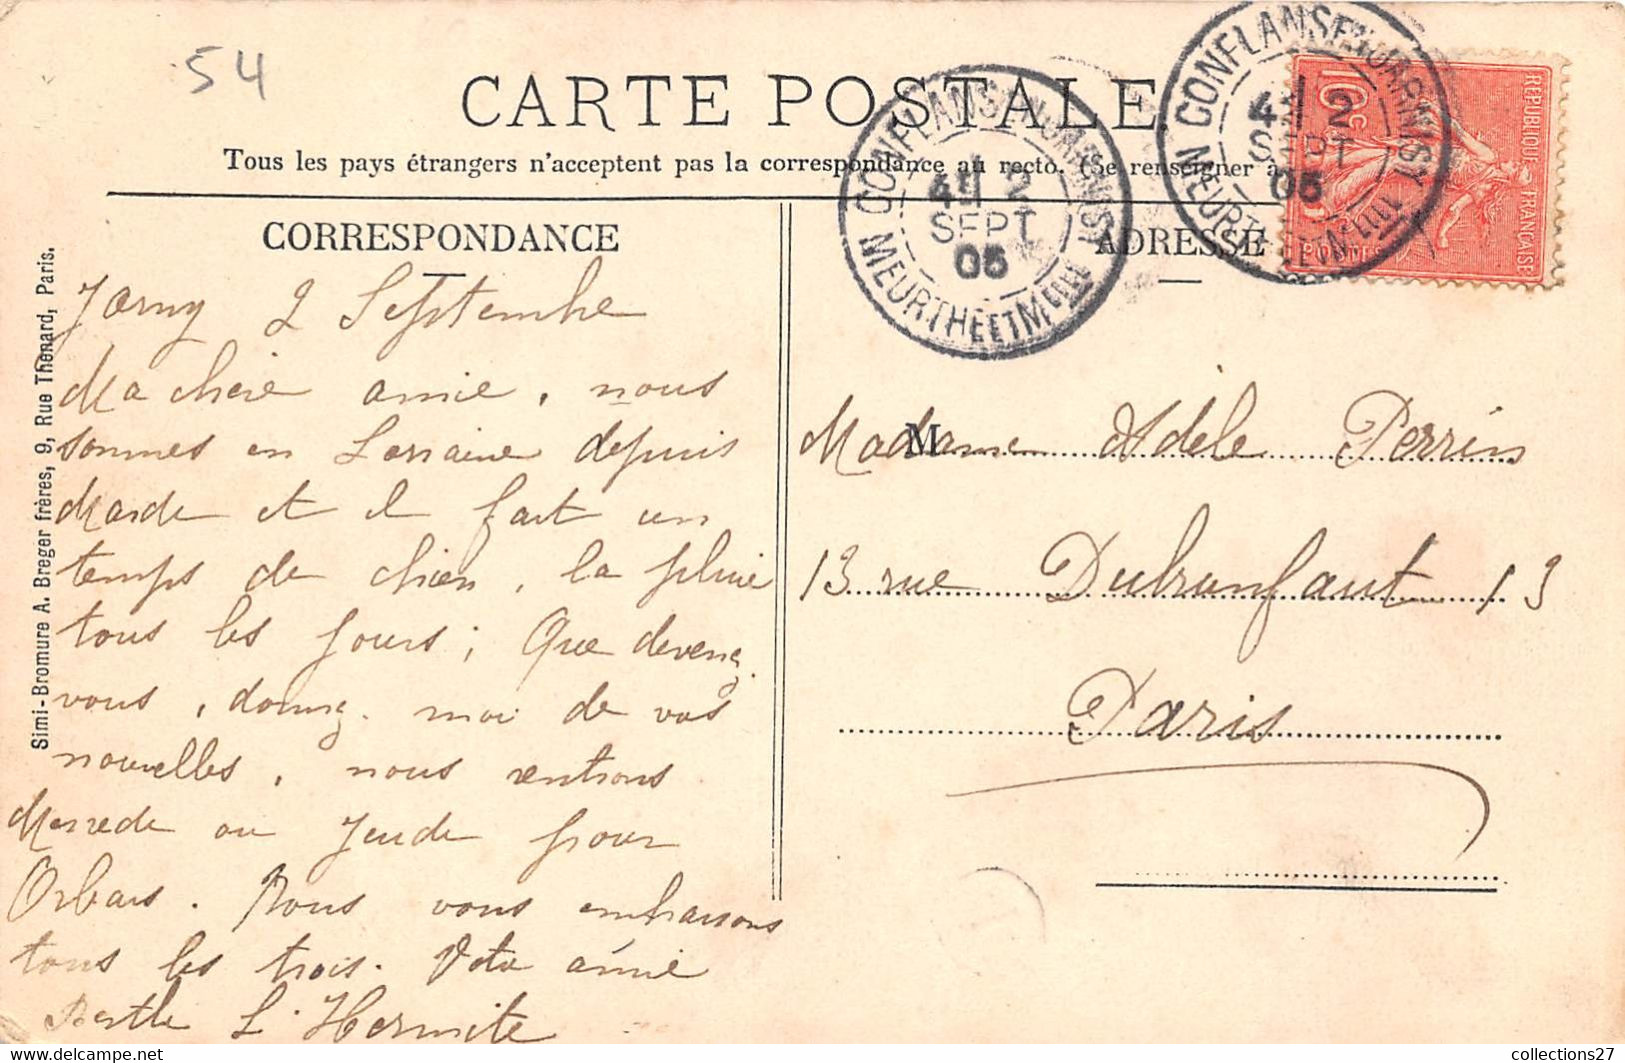 54
CARTE POSTALE
Tous les pays étrangers n'acceptent pas la correspondance au recto. (Se renseigner à
CORRESPONDANCE
ADRESSE
CONFLANS EN JARNISY
4E 2
SEPT
05
MEURTHE ET MELLE
CONFLANS EN JARNISY
4E 2
SEPT
05
MEURTHE ET MELLE
REPUBLIQUE FRANÇAISE
10c
POSTES
Simi-Bromure A. Breger frères, 9, Rue Thénard, Paris.
Jarny 2 Septembre
Ma chère amie, nous
sommes en Lorraine depuis
Marde et il fait un
temps de chien, la pluie
tous les jours; Que devenez
vous, donnez-moi de vos
nouvelles, nous rentrons
Mercrede ou Jeude pour
Orbais. Nous vous embrassons
tous les trois. Votre amie
Berthe L'Hermite
M
Madame Adèle Perrin
13 rue Dubrunfaut 13
Paris
collections27